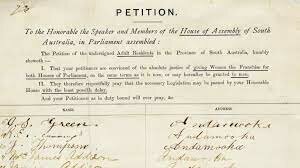 22
PETITION.
To the Honorable the Speaker and Members of the House of Assembly of South
Australia, in Parliament assembled:
The Petition of the undersigned Adult Residents in the Province of South Australia, humbly
sheweth—
1. That your petitioners are convinced of the absolute justice of giving Women the Franchise for
both Houses of Parliament, on the same terms as it is now, or may hereafter be granted to men.
2. They therefore respectfully pray that the necessary Legislation may be passed by your Honorable
House with the least possible delay.
And your Petitioners as in duty bound will ever pray, &c.
Green Andamooka
Andamooka
Thompson Andamooka
James Addison